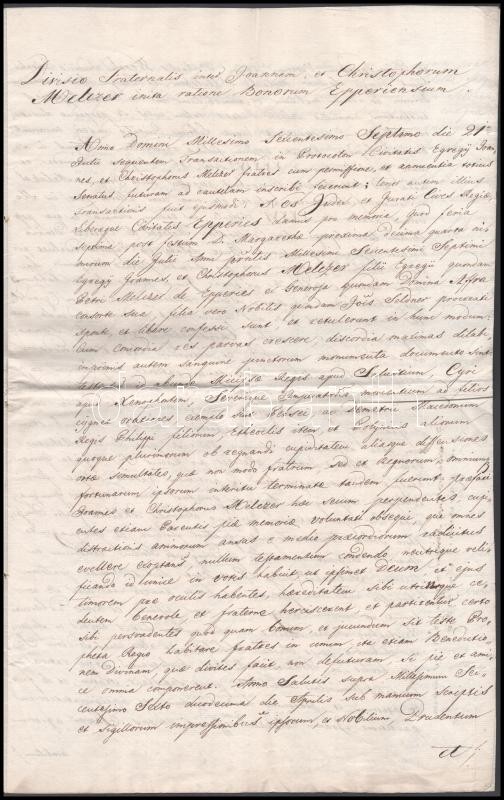 Divisio Fraternalis inter Joannem, et Christophorum
Melczer inita ratione Bonorum Epperiensium.
Anno Domini Millesimo Sexcentesimo Septimo die 21a
Julii sequentem Transactionem in Prothocolon Civitatis Egregij Joan
nes, et Christophorus Melczer fratres cum permissione, et annuentia totius
Senatus, futuram ad cautelam inscribi fecerunt; tenor autem illius
transactionis fuit ejusmodi: Nos Judex et Jurati Cives Regiæ,
Liberæque Civitatis Epperies damus pro memoria, quod feria
septima post festum D. Margarethæ proxima decima quarta ni
mirum die Julii Anni præsentis Millesimi Sexcentesimi Septimi
Egregij Joannes, et Christophorus Melczer filii Egregii quondam
Petri Melczer de Epperies ex Generosa quondam Domina Affra
consorte sua, filia vero Nobilis quondam Jois Seldner procreati
sponte et libere confessi sunt, et retulerunt in hunc modum:
Cum concordia res parvas crescere, discordia maximas dilabi
maximis autem sanguine junctorum monumenta documento sint
Regis apud Salustium, Cyri
apud Xenophontem, Severique Imperatoris morientium ad filios
cygneæ orationes exemplo sua Persei ac Demetrii Macedonum
Regis Philippi filiorum, Etheoclis item, et Polynicis aliorum
quoque plurimorum ob regnandi cupiditatem aliasque dissensiones
ortæ simultates, quæ non modo fratrum, sed et Regnorum, omnium
fortunarum ipsorum interitu terminatæ tandem fuerint, præfati
Joannes et Christophorus Melczer hæc secum perpendentes, cupi
entes etiam Parentis piæ memoriæ voluntati obsequi, qui omnes
distractionis animorum ansas e medio præcordiorum radicitus
evellere exoptans, nullum testamentum condendo neutrique
ficando id unice in votis habuit, ut ipsimet Deum, et ejus
timorem præ oculis habentes, hæreditatem sibi utrinque ce
dentem benevole, et fraterne herciscerent, et partirentur, certo
sibi persvadentes quod quam bonum, et jucundum sit teste Pro
pheta Regio habitare fratres in unum, ita etiam Benedictio
nem divinam, quæ divites facit, non defuturam si pie et ami
ce omnia componerent. Anno Salutis supra Millesimum Sex
centesimo Sexto duodecima die Aprilis sub manuum scriptis
et sigillorum impressionibus ipsorum, et Nobilium Prudentum